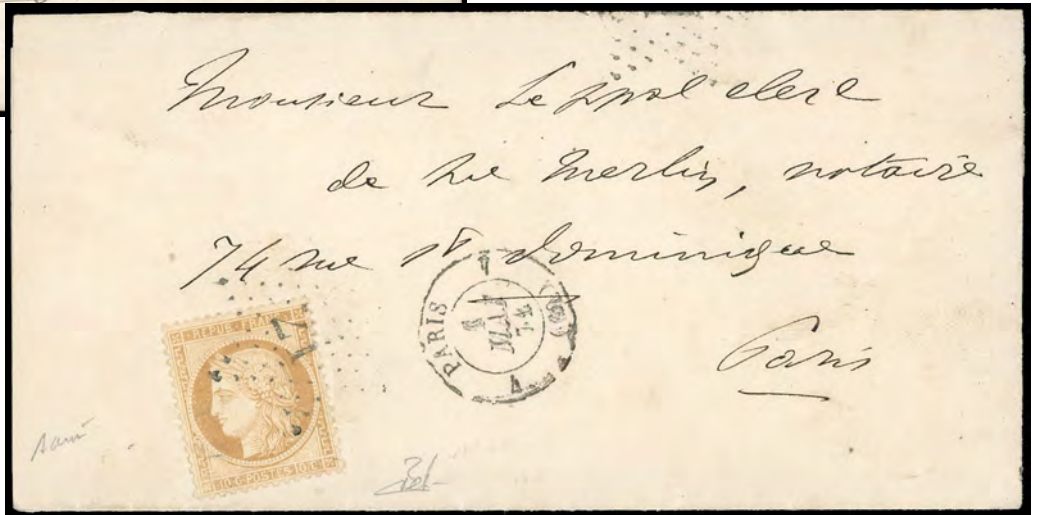 Monsieur Le ppal clerc
de Me Merlin, notaire
74 rue St Dominique
Paris
PARIS
17
REPUB · FRANC ·
10 · C · POSTES · 10 · C